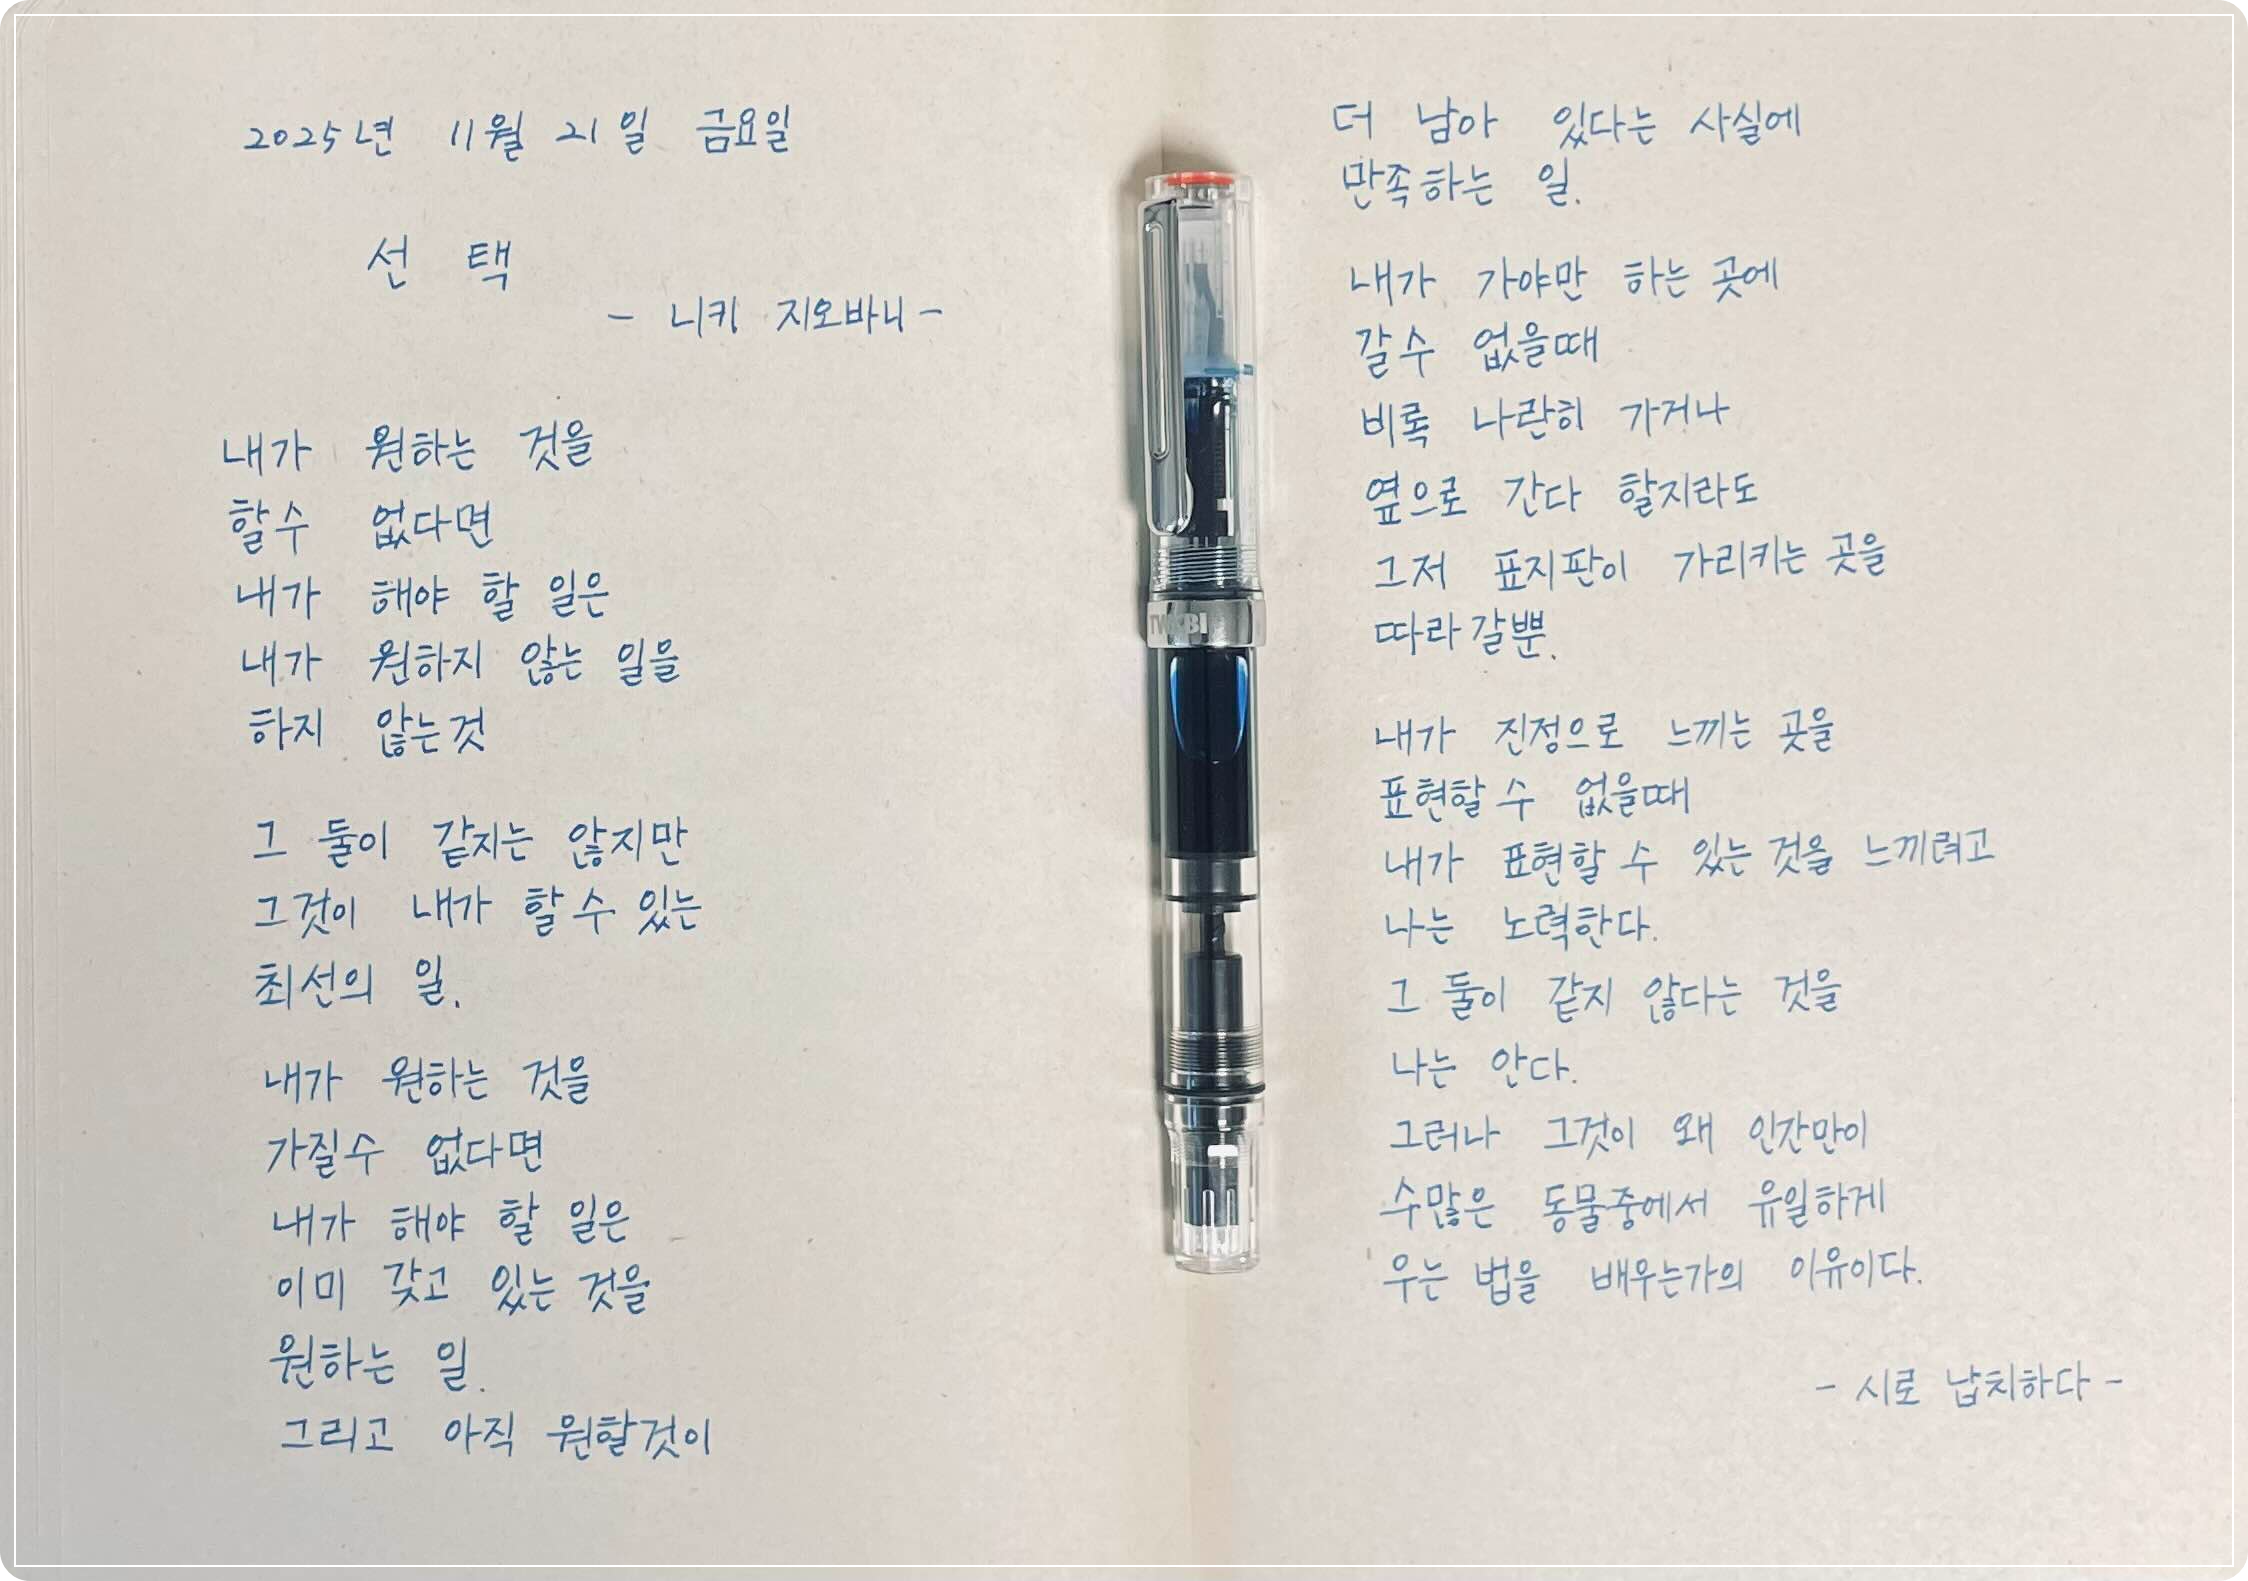 2025년 11월 21일 금요일
선 택
- 니키 지오바니 -
내가 원하는 것을
할수 없다면
내가 해야 할 일은
내가 원하지 않는 일을
하지 않는것
그 둘이 같지는 않지만
그것이 내가 할 수 있는
최선의 일.
내가 원하는 것을
가질수 없다면
내가 해야 할 일은
이미 갖고 있는 것을
원하는 일.
그리고 아직 원할것이
TWSBI
더 남아 있다는 사실에
만족하는 일.
내가 가야만 하는 곳에
갈수 없을때
비록 나란히 가거나
옆으로 간다 할지라도
그저 표지판이 가리키는 곳을
따라갈뿐.
내가 진정으로 느끼는 곳을
표현할 수 없을때
내가 표현할 수 있는 것을 느끼려고
나는 노력한다.
그 둘이 같지 않다는 것을
나는 안다.
그러나 그것이 왜 인간만이
수많은 동물중에서 유일하게
우는 법을 배우는가의 이유이다.
- 시로 납치하다 -